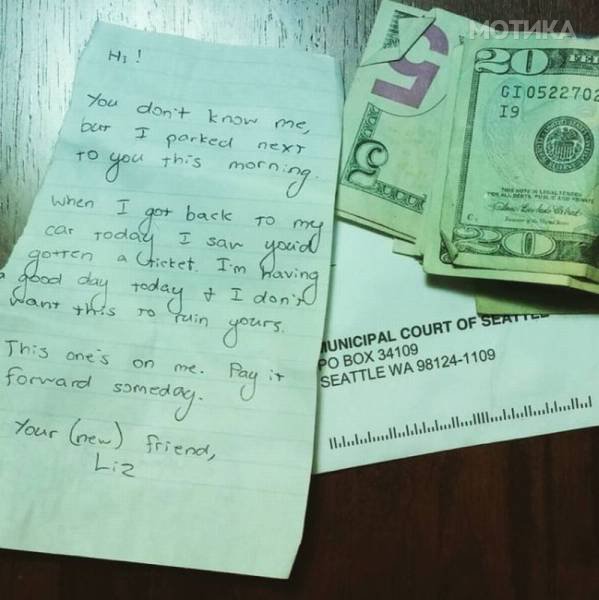 Hi!
You don't know me,
but I parked next
to you this morning.
When I got back to my
car today I saw you'd
gotten a ticket. I'm having
a good day today & I don't
want this to ruin yours.
This one's on me. Pay it
forward someday.
Your (new) friend,
Liz
МОТИКА
5
5
20
GI 0522702
I9
THIS NOTE IS LEGAL TENDER
FOR ALL DEBTS, PUBLIC AND PRIVATE
20
MUNICIPAL COURT OF SEATTLE
PO BOX 34109
SEATTLE WA 98124-1109